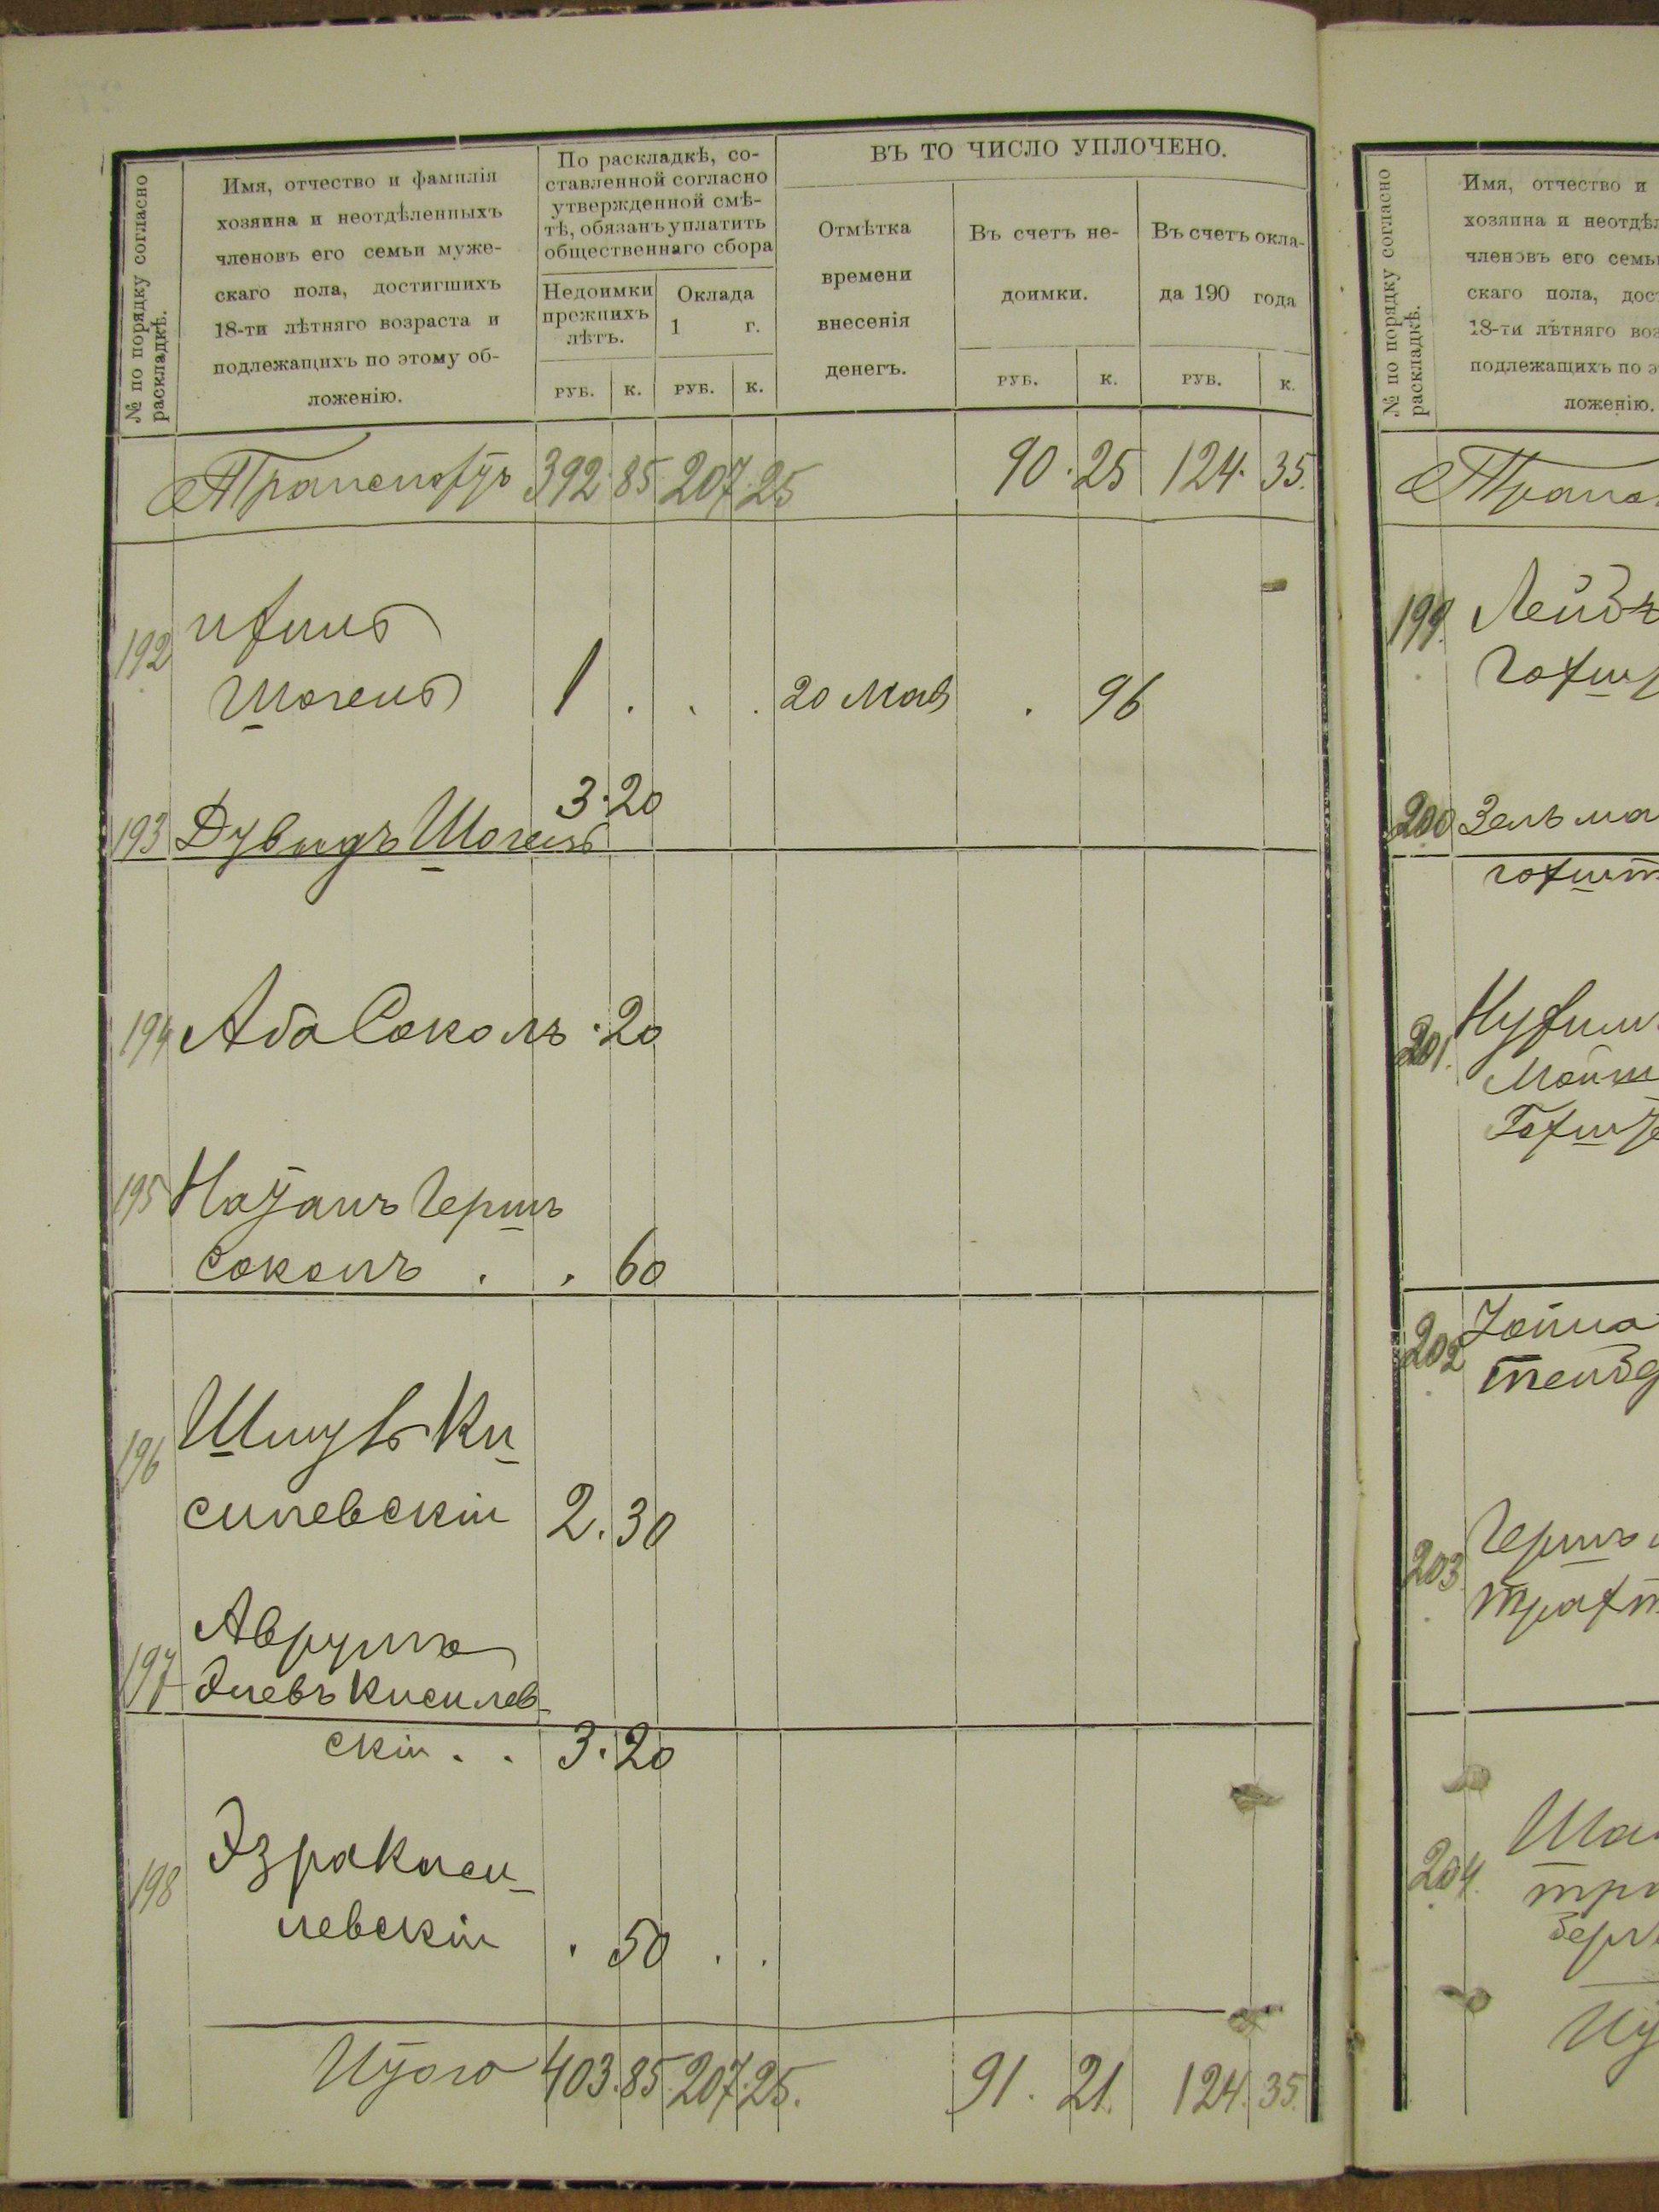 № по порядку согласно раскладкѣ.
Имя, отчество и фамилія
хозяина и неотдѣленныхъ
членовъ его семьи муже-
скаго пола, достигшихъ
18-ти лѣтняго возраста и
подлежащихъ по этому об-
ложенію.
По раскладкѣ, со-
ставленной согласно
утвержденной смѣ-
тѣ, обязанъ уплатить
общественнаго сбора
Недоимки
прежнихъ
лѣтъ.
Оклада
1 г.
РУБ. К. РУБ. К.
ВЪ ТО ЧИСЛО УПЛОЧЕНО.
Отмѣтка
времени
внесенія
денегъ.
Въ счетъ не-
доимки.
РУБ. К.
Въ счетъ окла-
да 190 года
РУБ. К.
Транспортъ 392 85 207 25 90 25 124 35
192
Шогенъ 1 . . . 20 Мая . 96
3 20
193 Дувидъ Шогенъ
194 Аба Соколъ 20
195 Натанъ Гершъ
Соколъ . . 60
196 Шмуль Ки-
силевскій 2. 30
197 Аврумъ
Юлевъ Кисилев-
скій . . 3. 20
198 Эзра Киси-
левскій . 50 . .
Итого 403. 85. 207. 25. 91. 21. 124. 35.
№ по порядку согласно раскладкѣ.
Имя, отчество и
хозяина и неотдѣл
членовъ его семьи
скаго пола, дос
18-ти лѣтняго воз
подлежащихъ по э
ложенію.
Транс
199. Лейбъ
200 Зельма
201.
Мойш
202
203 Гершъ
204. 
Ит